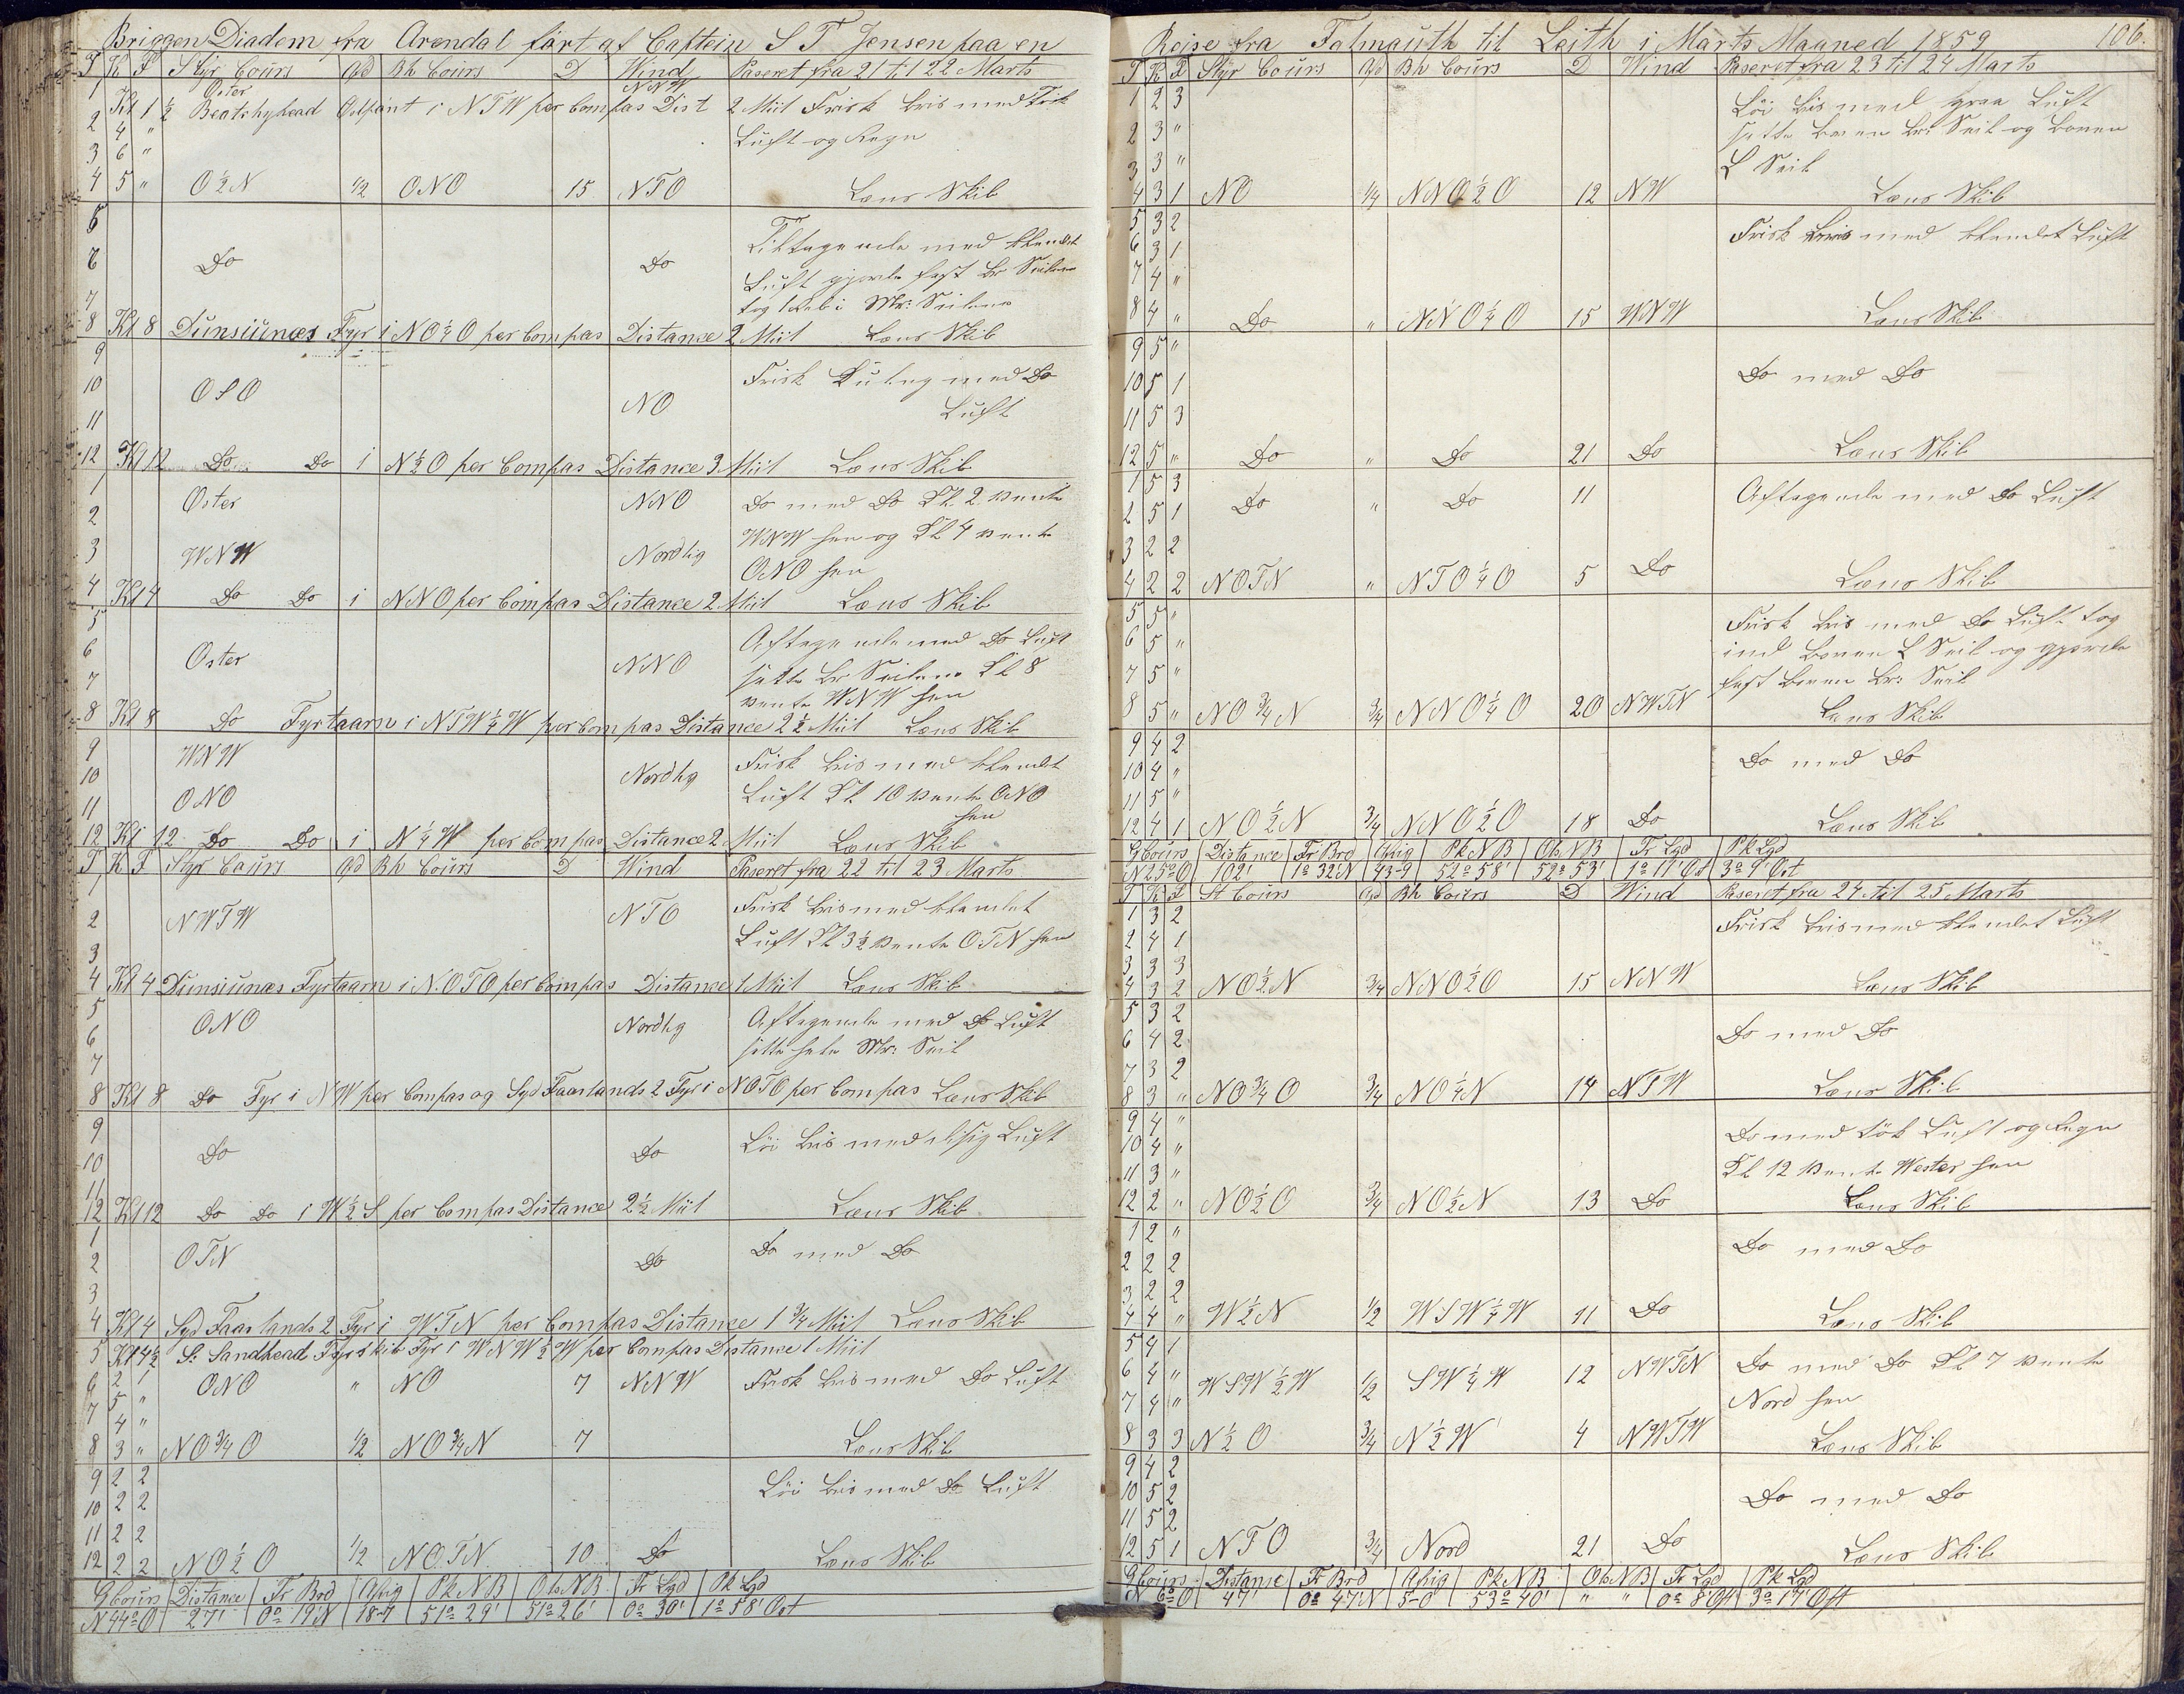 Briggen Diadem fra Arendal fört af Captein S T Jensen paa en
T K F Styr Cours Afd Bh Cours D Wind Paseret fra 21 til 22 Marts
1 Öster NNW
Kl 1 ½ Beatchyhead Ostpönt i N T W per Compas Dist 2 Miil Frisk Bris med Tyk
2 4 " Luft og Regn
3 6 "
4 5 " O½N ½ ONO 15 NTO Læns Skib
5
6 Do Do Tiltagende med blandet
Luft gjorde fast Br Seilene
7 tog 1 Reb i Mr: Seilene
8 Kl 8 Dunsiunæs Fyr i NO½O per Compas Distance 2 Miil Læns Skib
9
10 OSO NO Frisk Kuling med Do
11 Luft
12 Kl 12 Do Do i N½O per Compas Distance 3 Miil Læns Skib
1 Öster NNO Do med Do Kl 2 vente
2 WNW hen og Kl 4 vente
3 WNW Nordlig ONO hen
4 Kl 4 Do Do i NNO per Compas Distance 2 Miil Læns Skib
5
6 Öster NNO Aftagende med Do Luft
7 satte Br Seilene Kl 8
vente WNW hen
8 Kl 8 Do Fyrtaarn i NTW¼W per Compas Distance 2½ Miil Læns Skib
9 WNW Nordlig Frisk Bris med blandet
10 Luft Kl 10 vente ONO
11 ONO hen
12 Kl 12 Do Do i N¼W per Compas Distance 2 Miil Læns Skib
T K F Styr Cours Afd Bh Cours D Wind Paseret fra 22 til 23 Marts
1
2 NWTW NTO Frisk Bris med blandet
3 Luft Kl 3½ vente OTN hen
4 Kl 4 Dunsiunæs Fyrtaarn i N.OTO per Compas Distance 1 Miil Læns Skib
5 ONO Nordlig Aftagende med Do Luft
6 satte hele Mr: Seil
7
8 Kl 8 Do Fyr i NW per Compas og Syd Faarlands 2 Fyr i NOTO per Compas Læns Skib
9
10 Do Do Löi Bris med disig Luft
11
12 Kl 12 Do Do i W½S per Compas Distance 2½ Miil Læns Skib
1
2 OTN Do Do med Do
3
4 Kl 4 Syd Faarlands 2 Fyr i WTN per Compas Distance 1¾ Miil Læns Skib
5 Kl 4½ S: Sandhead Fyrskib Fyr i WNW½W per Compas Distance 1 Miil
6 2 1 ONO " NO 7 NNW Frisk Bris med Do Luft
5 "
7 4 "
8 3 " NO¾O ½ NO¾N 7 Læns Skib
9 2 2 Löi Bris med Do Luft
10 2 2
11 2 2
12 2 2 NO½O ½ NOTN 10 Do Læns Skib
G Cours Distance Fr Brd Afvig Pk NB Obs. NB Fr Lgd Pk Lgd
N44°O 27' 0° 19'N 18-7 51° 29' 51° 26' 0° 30' 1° 58' Ost
Reise fra Falmouth til Leith i Marts Maaned 1859 106.
T K F Styr Cours Afd Bh Cours D Wind Paseret fra 23 til 24 Marts
1 2 3 Löi Bris med graa Luft
2 3 " satte boven Br: Seil og boven
3 3 " L Seil
4 3 1 NO ¼ NNO½O 12 NW Læns Skib
5 3 2 Frisk Bris med blandet Luft
6 3 1
7 4 "
8 4 " Do " NNO¼O 15 WNW Læns Skib
9 5 "
10 5 1 Do med Do
11 5 3
12 5 " Do " Do 21 Do Læns Skib
1 5 3
2 5 1 Do " Do 11 Aftagende med Do Luft
3 2 2
4 2 2 NOTN " NTO¼O 5 Do Læns Skib
5 5 " Frisk Bris med Do Luft tog
6 5 " ind boven L Seil og gjorde
7 5 " fast boven Br: Seil
8 5 " NO¾N ¾ NNO¼O 20 NWTN Læns Skib
9 4 2 Do med Do
10 4 "
11 5 "
12 4 1 NO½N ¾ NNO½O 18 Do Læns Skib
G Cours Distance Fr Brd Afvig Pk NB Obs NB Fr Lgd Pk Lgd
N25°O 102' 1° 32'N 43-9 52° 58' 52° 53' 1° 11' Ost 3° 9' Ost
T K F St Cours Afd Bh Cours D Wind Paseret fra 24 til 25 Marts
1 3 2 Frisk Bris med blandet Luft
2 4 1
3 3 3
4 3 2 NO½N ¾ NNO½O 15 NNW Læns Skib
5 3 2
6 4 2 Do med Do
7 3 2
8 3 " NO¾O ¾ NO¼N 14 NTW Læns Skib
9 4 " Do med tök Luft og Regn
10 4 "
11 3 " Kl 12 vente Wester hen
12 2 " NO½O ¾ NO½N 13 Do Læns Skib
1 2 " Do med Do
2 2 2
3 2 2
4 4 " W½N ½ WSW¼W 11 Do Læns Skib
5 4 1
6 4 " WSW½W ½ SW¼W 12 NWTN Do med Do Kl 7 vente
7 4 " Nord hen
8 3 3 N½O ¾ N½W 4 NWTW Læns Skib
9 4 2
10 5 2 Do med Do
11 5 2
12 5 1 NTO ¾ Nord 21 Do Læns Skib
G Cours Distanse Fr Brd Afvig Pk NB Obs NB Fr Lgd Pk Lgd
N 6°O 47' 0° 47'N 5-0 53° 40' " " 0° 8' Ost 3° 17' Ost